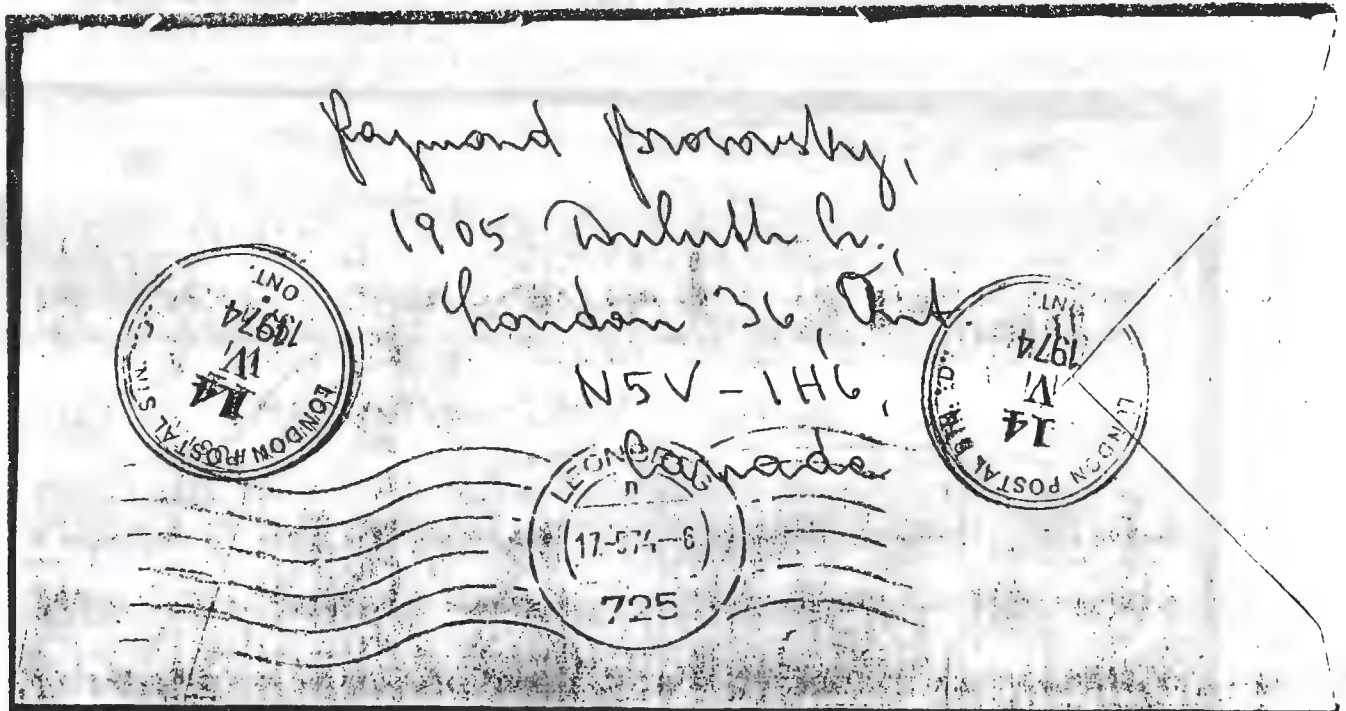 Raymond Brosovsky,
1905 Duluth Cr.,
London 36, Ont.
N5V-1H6,
Canada
LONDON POSTAL STN. "C"
14
IV
1974
ONT.
LONDON POSTAL STN. "D"
14
V
1974
ONT.
LEONBERG
n
17.-5.74--6
725